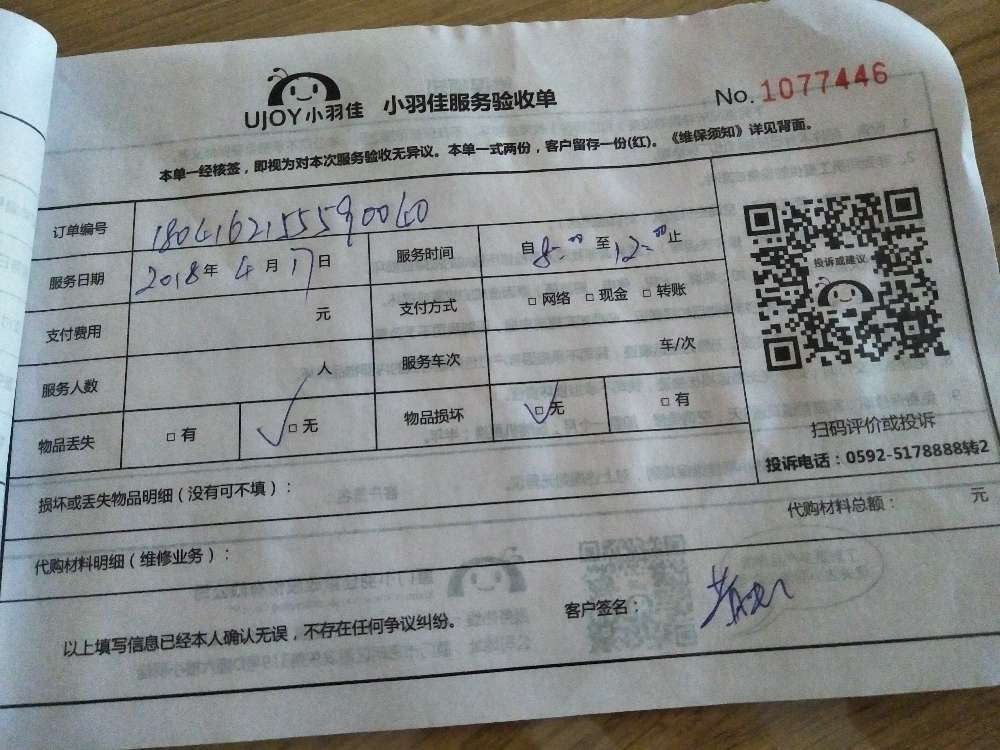 UJOY小羽佳 小羽佳服务验收单 No.1077446
本单一经核签，即视为对本次服务验收无异议。本单一式两份，客户留存一份(红)。《维保须知》详见背面。
订单编号 1804162155590040
服务日期 2018年4月17日 服务时间 自8:00至12:00止
投诉或建议
支付费用 元 支付方式 □网络 □现金 □转账
服务人数 人 服务车次 车/次
物品丢失 □有 ☑无 物品损坏 ☑无 □有
扫码评价或投诉
投诉电话：0592-5178888转2
损坏或丢失物品明细（没有可不填）：
代购材料总额： 元
代购材料明细（维修业务）：
以上填写信息已经本人确认无误，不存在任何争议纠纷。 客户签名：